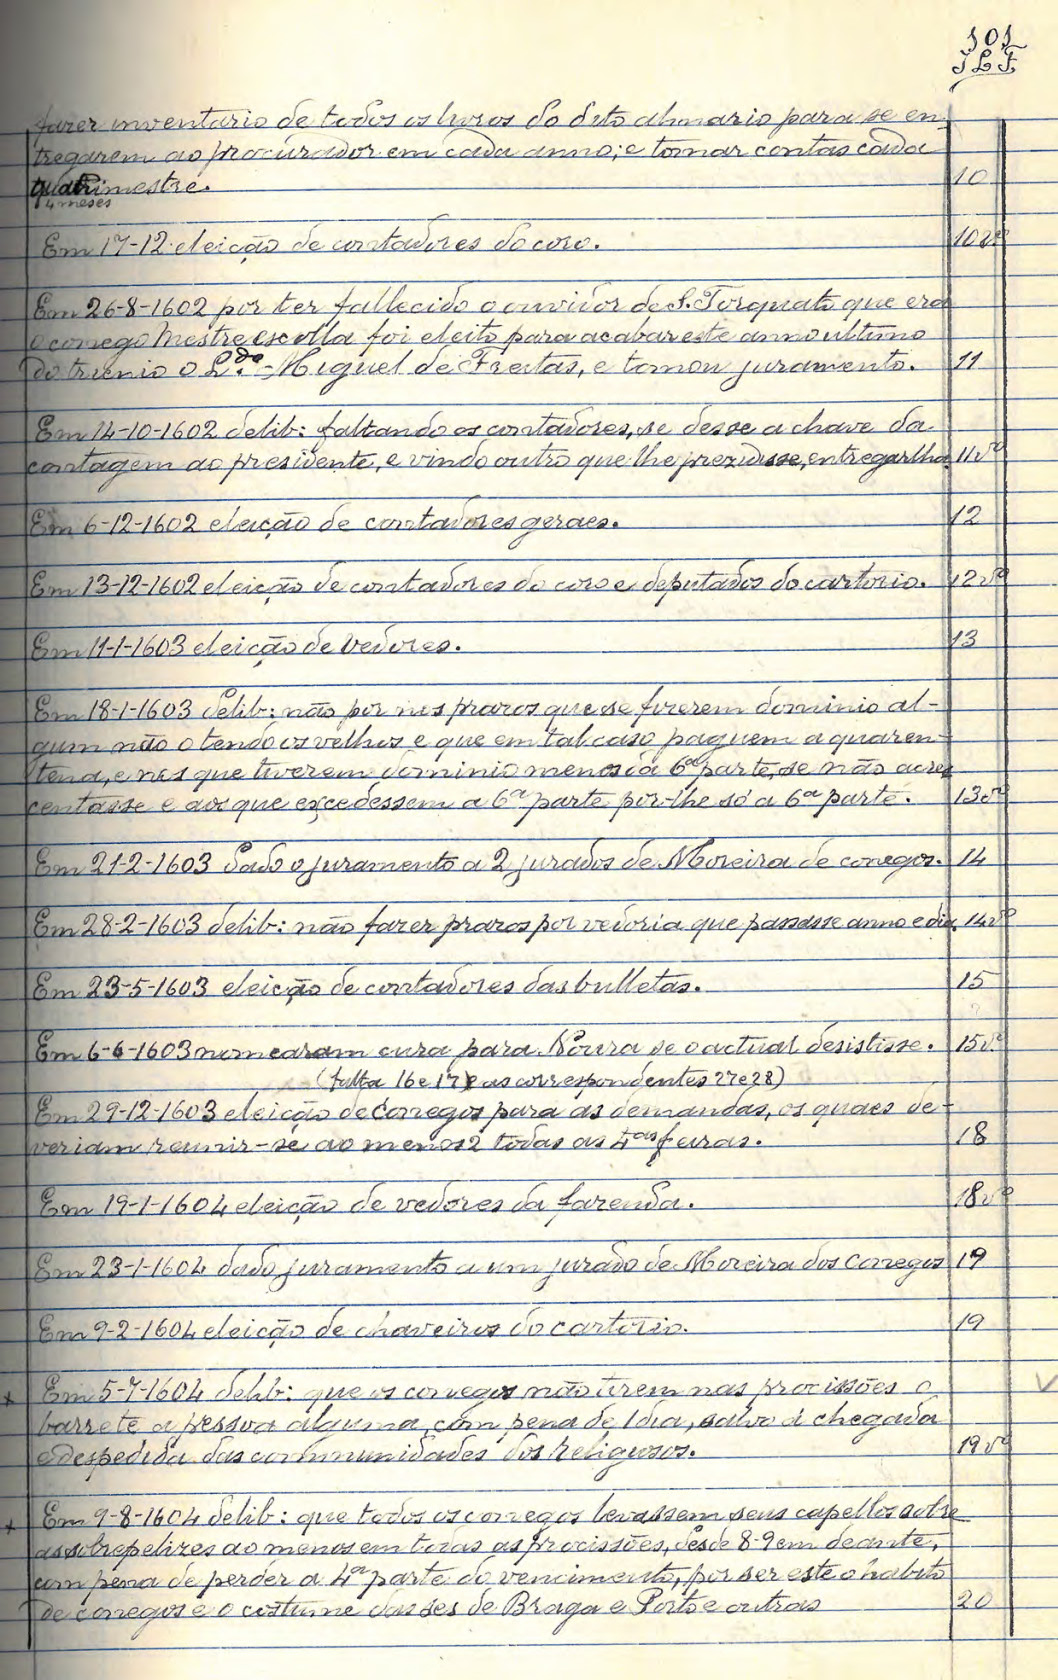 101
J L F.
fazer inventario de todos os livros do dito almario para se en-
tregarem ao procurador em cada anno; e tomar contas cada
quadrimestre. 10
4 meses
Em 17-12 eleição de contadores do coro. 10vº
Em 26-8-1602 por ter fallecido o ouvidor de S. Torquato que era
o conego Mestre escolla foi eleito para acabar este anno ultimo
do trienio o L.do Miguel de Freitas, e tomou juramento. 11
Em 14-10-1602 delib: faltando os contadores, se desse a chave da
contagem ao presidente, e vindo outro que lhe prezidisse, entregarlha 11vº
Em 6-12-1602 eleição de contadores geraes. 12
Em 13-12-1602 eleição de contadores do coro e deputados do cartorio. 12vº
Em 11-1-1603 eleição de vedores. 13
Em 18-1-1603 delib: não por nos prazos que se fizerem dominio al-
gum não o tendo os velhos e que em tal caso paguem a quaren-
tena, e nos que tiverem dominio menos da 6ª parte, se não acres
centasse e aos que excedessem a 6ª parte por-lhe só a 6ª parte. 13vº
Em 21-2-1603 dado o juramento a 2 jurados de Moreira de conegos. 14
Em 28-2-1603 delib: não fazer prazos por vedoria que passasse anno e dia. 14vº
Em 23-5-1603 eleição de contadores das bulletas. 15
Em 6-6-1603 nomearam cura para Noura se o actual desistisse. 15vº
(falta 16 e 17 e as correspondentes 27 e 28)
Em 29-12-1603 eleição de conegos para as demandas, os quaes de-
veriam reunir-se ao menos 2 todas as 4as feiras. 18
Em 19-1-1604 eleição de vedores da fazenda. 18vº
Em 23-1-1604 dado juramento a um jurado de Moreira dos Conegos 19
Em 9-2-1604 eleição de chaveiros do cartorio. 19
x Em 5-7-1604 delib: que os conegos não tirem nas procissões o
barrete a pessoa alguma, com pena de 1 dia, salvo á chegada
e despedida das communidades dos religiosos. 19vº
x Em 9-8-1604 delib: que todos os conegos levassem seus capellos sobre
as sobrepelizes ao menos em todas as procissões, desde 8-9 em deante,
com pena de perder a 4ª parte do vencimento, por ser este o habito
de conegos e o costume das sés de Braga e Porto e outras 20